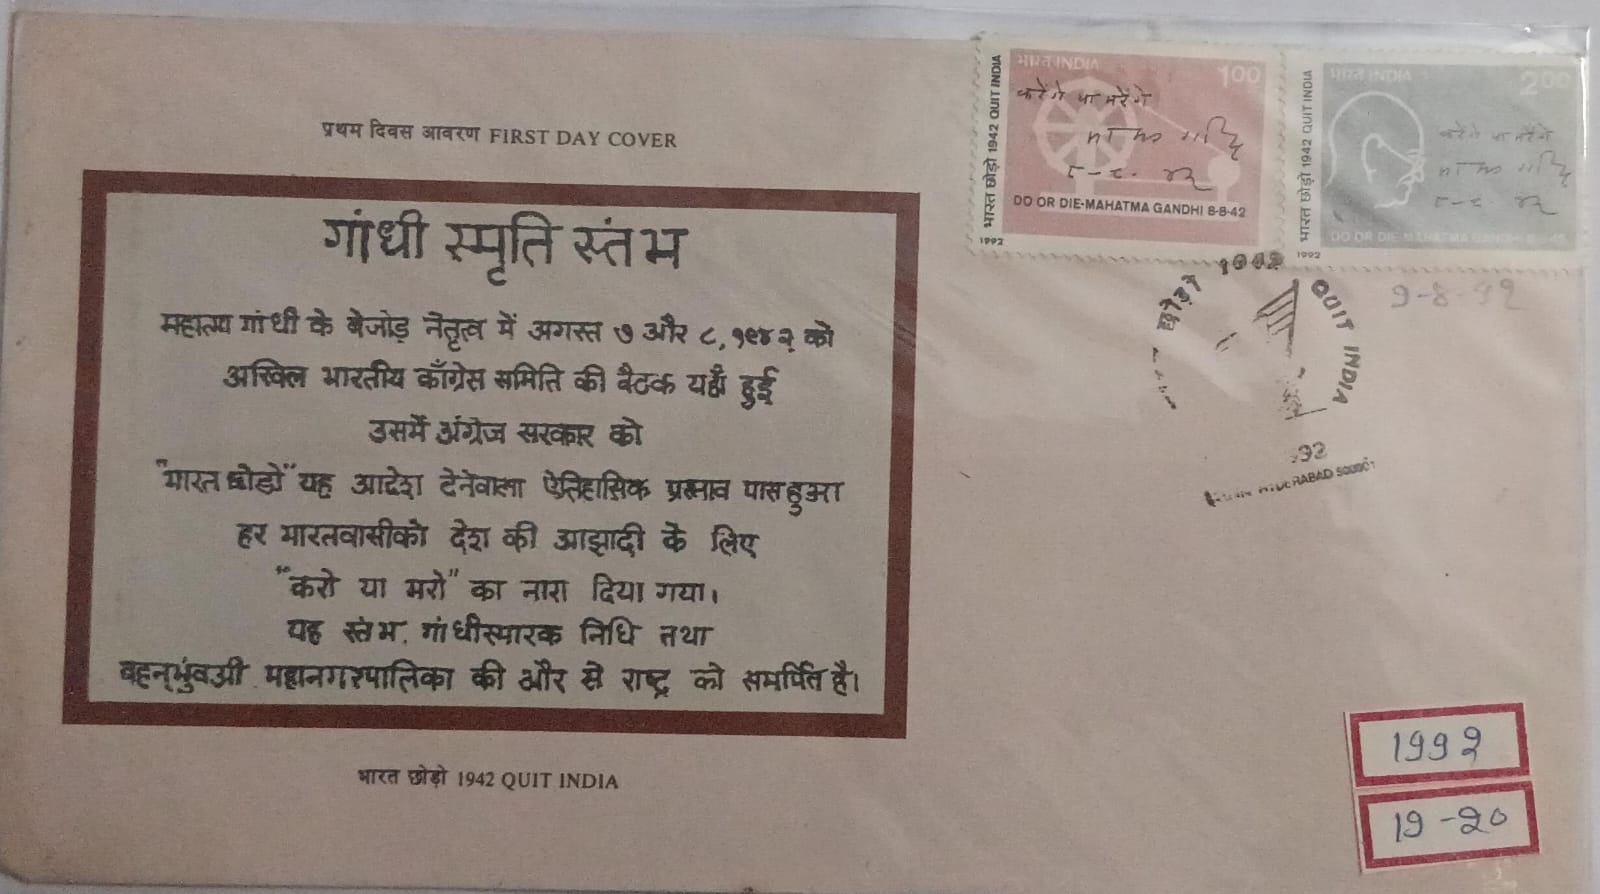 प्रथम दिवस आवरण FIRST DAY COVER
गांधी स्मृति स्तंभ
महात्मा गांधी के बेजोड़ नेतृत्व में अगस्त ७ और ८, १९४२ को
अखिल भारतीय काँग्रेस समिति की बैठक यहाँ हुई
उसमें अंग्रेज सरकार को
"भारत छोडो" यह आदेश देनेवाला ऐतिहासिक प्रस्ताव पास हुआ
हर भारतवासीको देश की आझादी के लिए
"करो या मरो" का नारा दिया गया।
यह स्तंभ गांधीस्मारक निधि तथा
महानगरपालिका की और से राष्ट्र को समर्पित है।
भारत छोड़ो 1942 QUIT INDIA
भारत छोड़ो 1942 QUIT INDIA
1992
भारत INDIA
100
करेंगे या मरेंगे
८-८-४२
DO OR DIE-MAHATMA GANDHI 8-8-42
भारत छोड़ो 1942 QUIT INDIA
1992
भारत INDIA
200
करेंगे या मरेंगे
८-८-४२
DO OR DIE-MAHATMA GANDHI 8-8-42
छोड़ो QUIT INDIA
HYDERABAD
9-8-92
1992
19-20